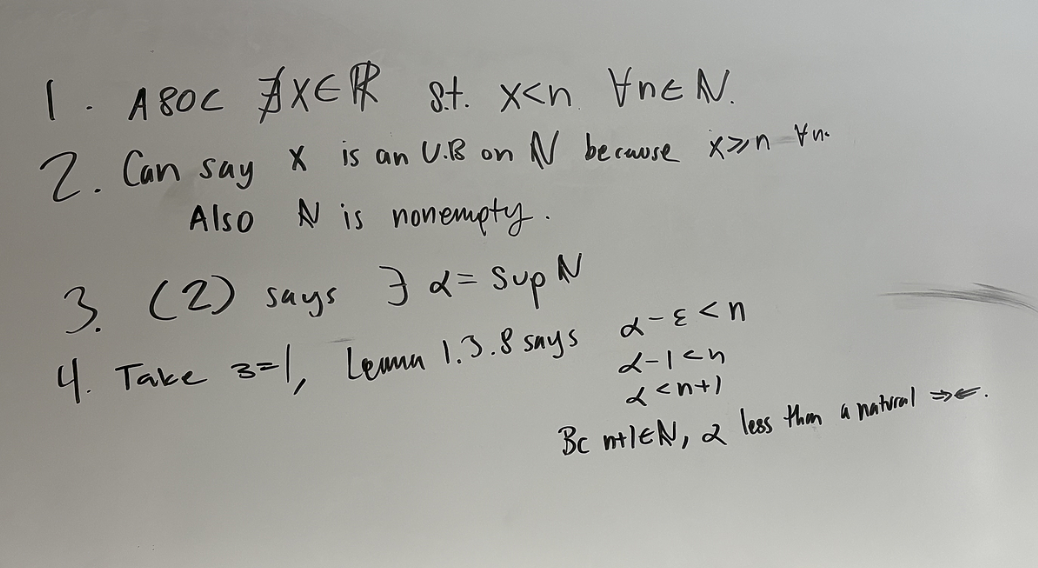 1. ABOC ∄x∈ℝ s.t. x<n ∀n∈ℕ.
2. Can say x is an U.B on ℕ because x⩾n ∀n.
Also ℕ is nonempty.
3. (2) says ∃ α = sup ℕ
4. Take ε=1, Lemma 1.3.8 says α-ε<n
α-1<n
α<n+1
Bc n+1∈ℕ, α less than a natural ⇒⇐.